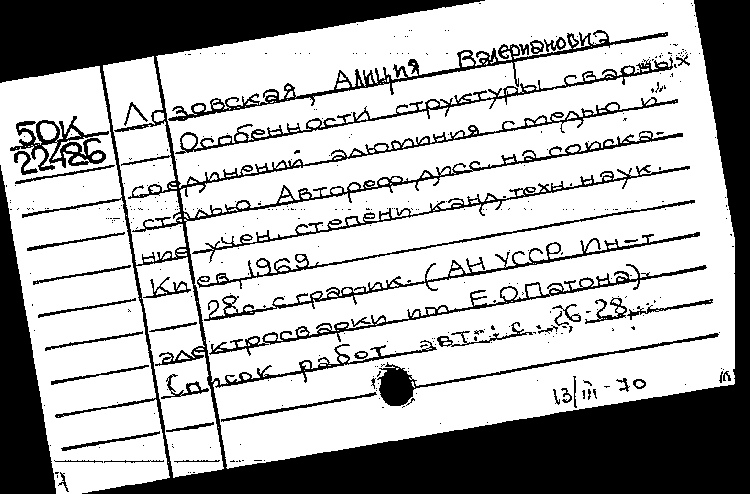 Лозовская, Алиция Валериановна
50К
22486
Особенности структуры сварных
соединений алюминия с медью и
сталью. Автореф. дисс. на соиска-
ние учен. степени канд. техн. наук.
Киев, 1969.
28с. с график. (АН УССР. Ин-т
электросварки им. Е.О.Патона).
Список работ авт.: с. 26-28.
13/III-70